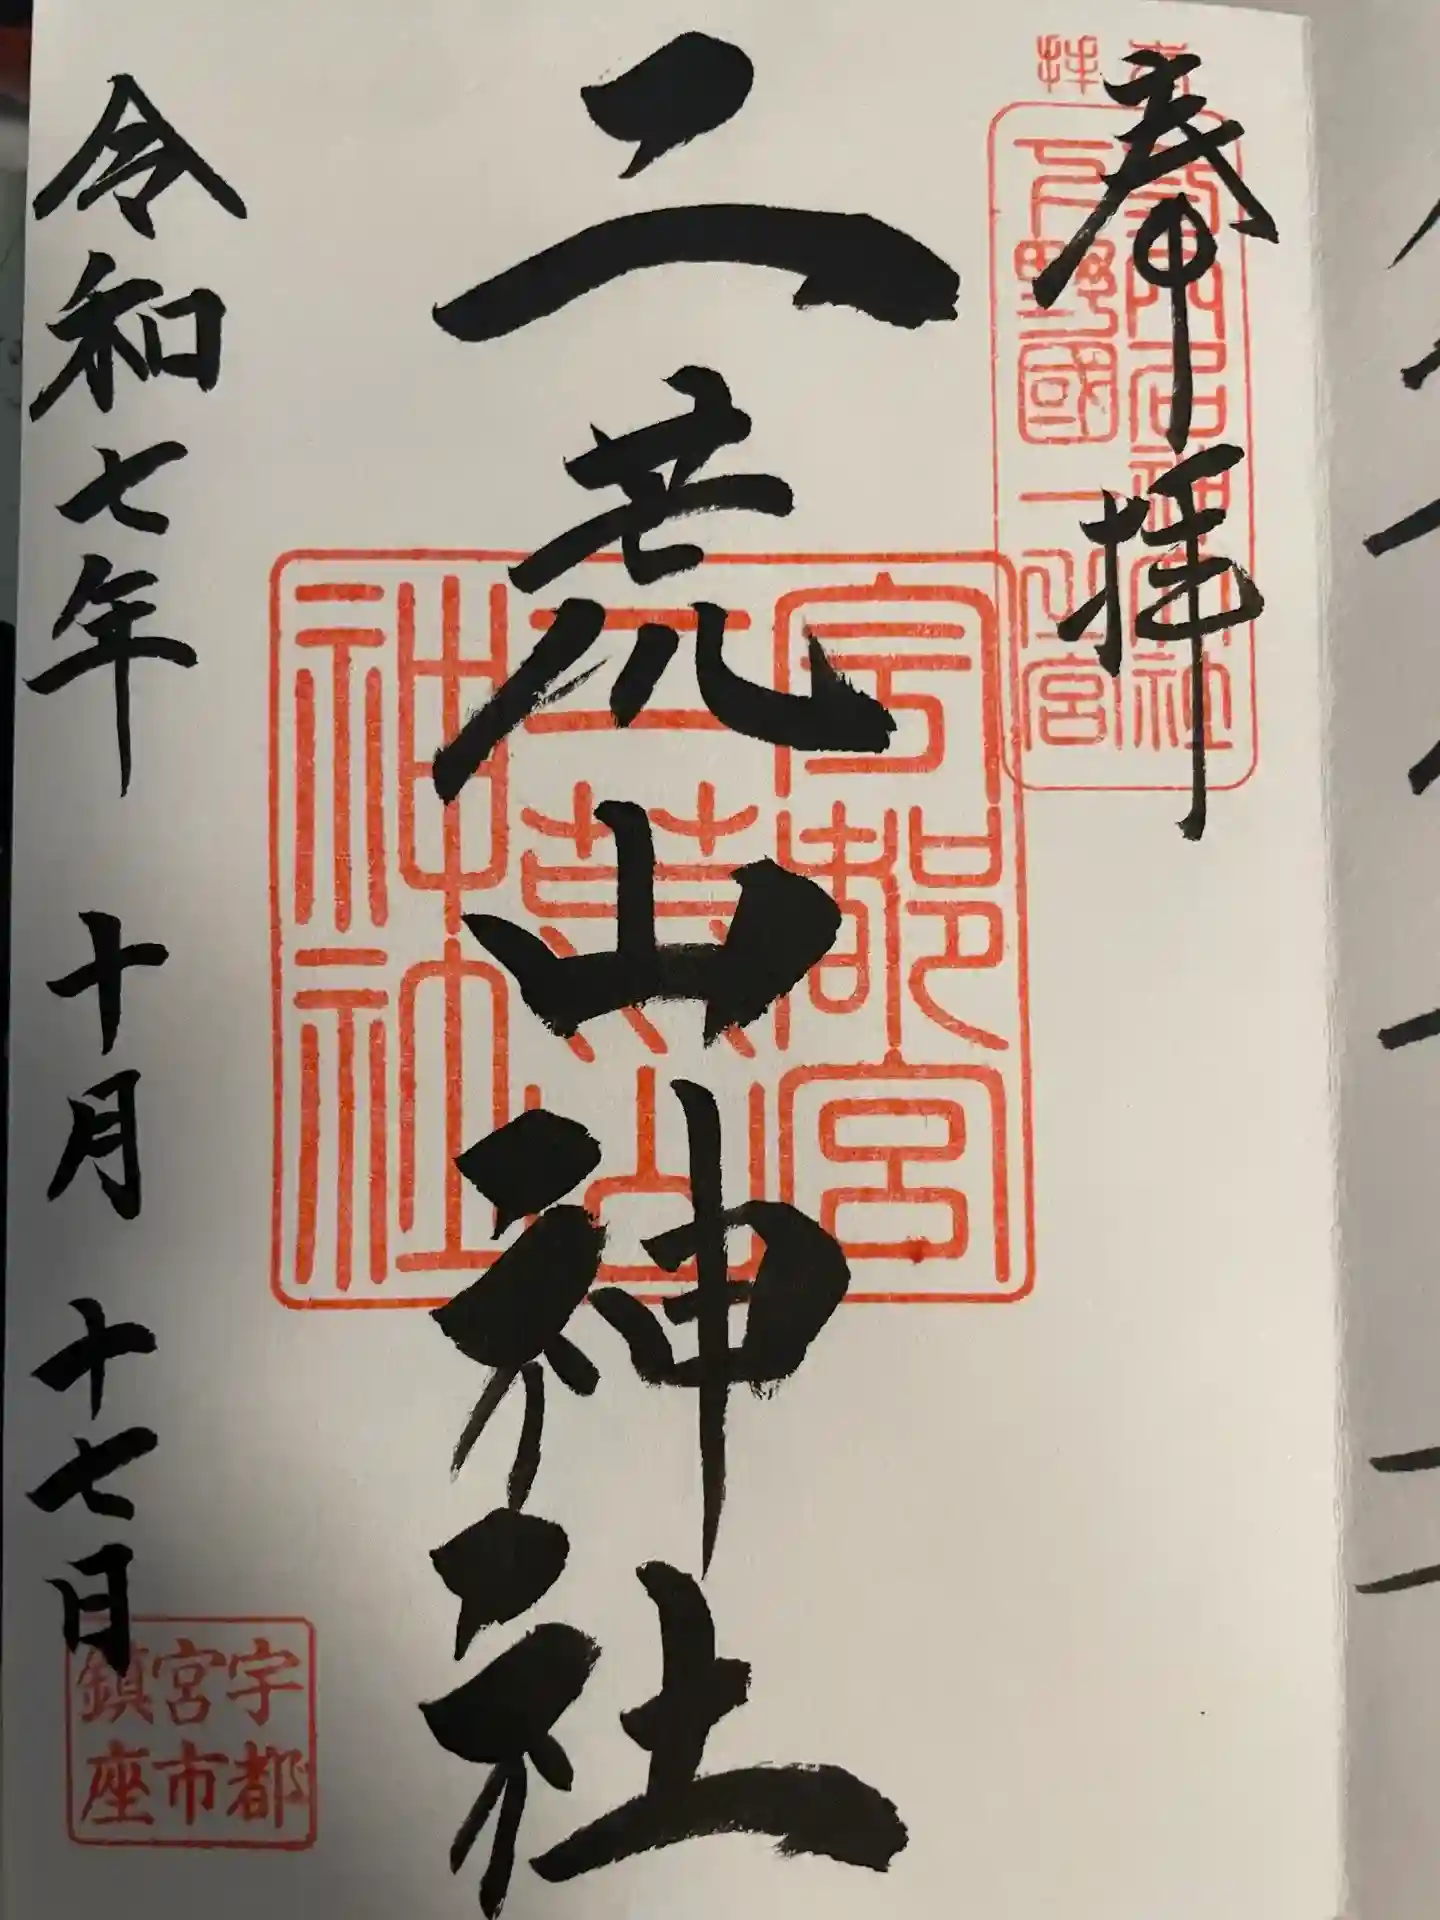 奉拝
下野國一之宮
二荒山神社
宇都宮
二荒山
神社
令和七年 十月 十七日
宇都
宮市
鎮座